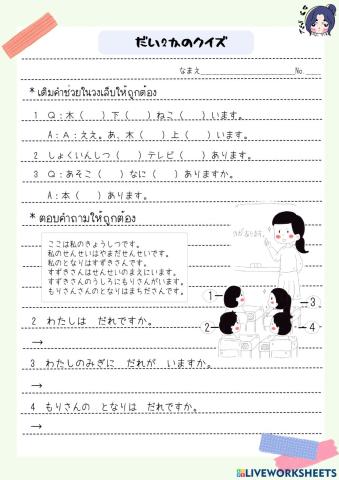 だい2かのクイズ
なまえ No.
* เติมคำช่วยในวงเล็บให้ถูกต้อง
1 Q：木（ ）下（ ）ねこ（ ）います。
A：A：ええ。あ、木（ ）上（ ）います。
2 しょくいんしつ（ ）テレビ（ ）あります。
3 Q：あそこ（ ）なに（ ）ありますか。
A：本（ ）あります。
* ตอบคำถามให้ถูกต้อง
ここは私のきょうしつです。
私のせんせいはやまだせんせいです。
私のとなりはすずきさんです。
すずきさんはせんせいのまえにいます。
すずきさんのうしろにもりさんがいます。
もりさんさんのとなりはまちださんです。
1
3
2
4
2 わたしは だれですか。
→
3 わたしのみぎに だれが いますか。
→
4 もりさんの となりは だれですか。
→
LIVEWORKSHEETS